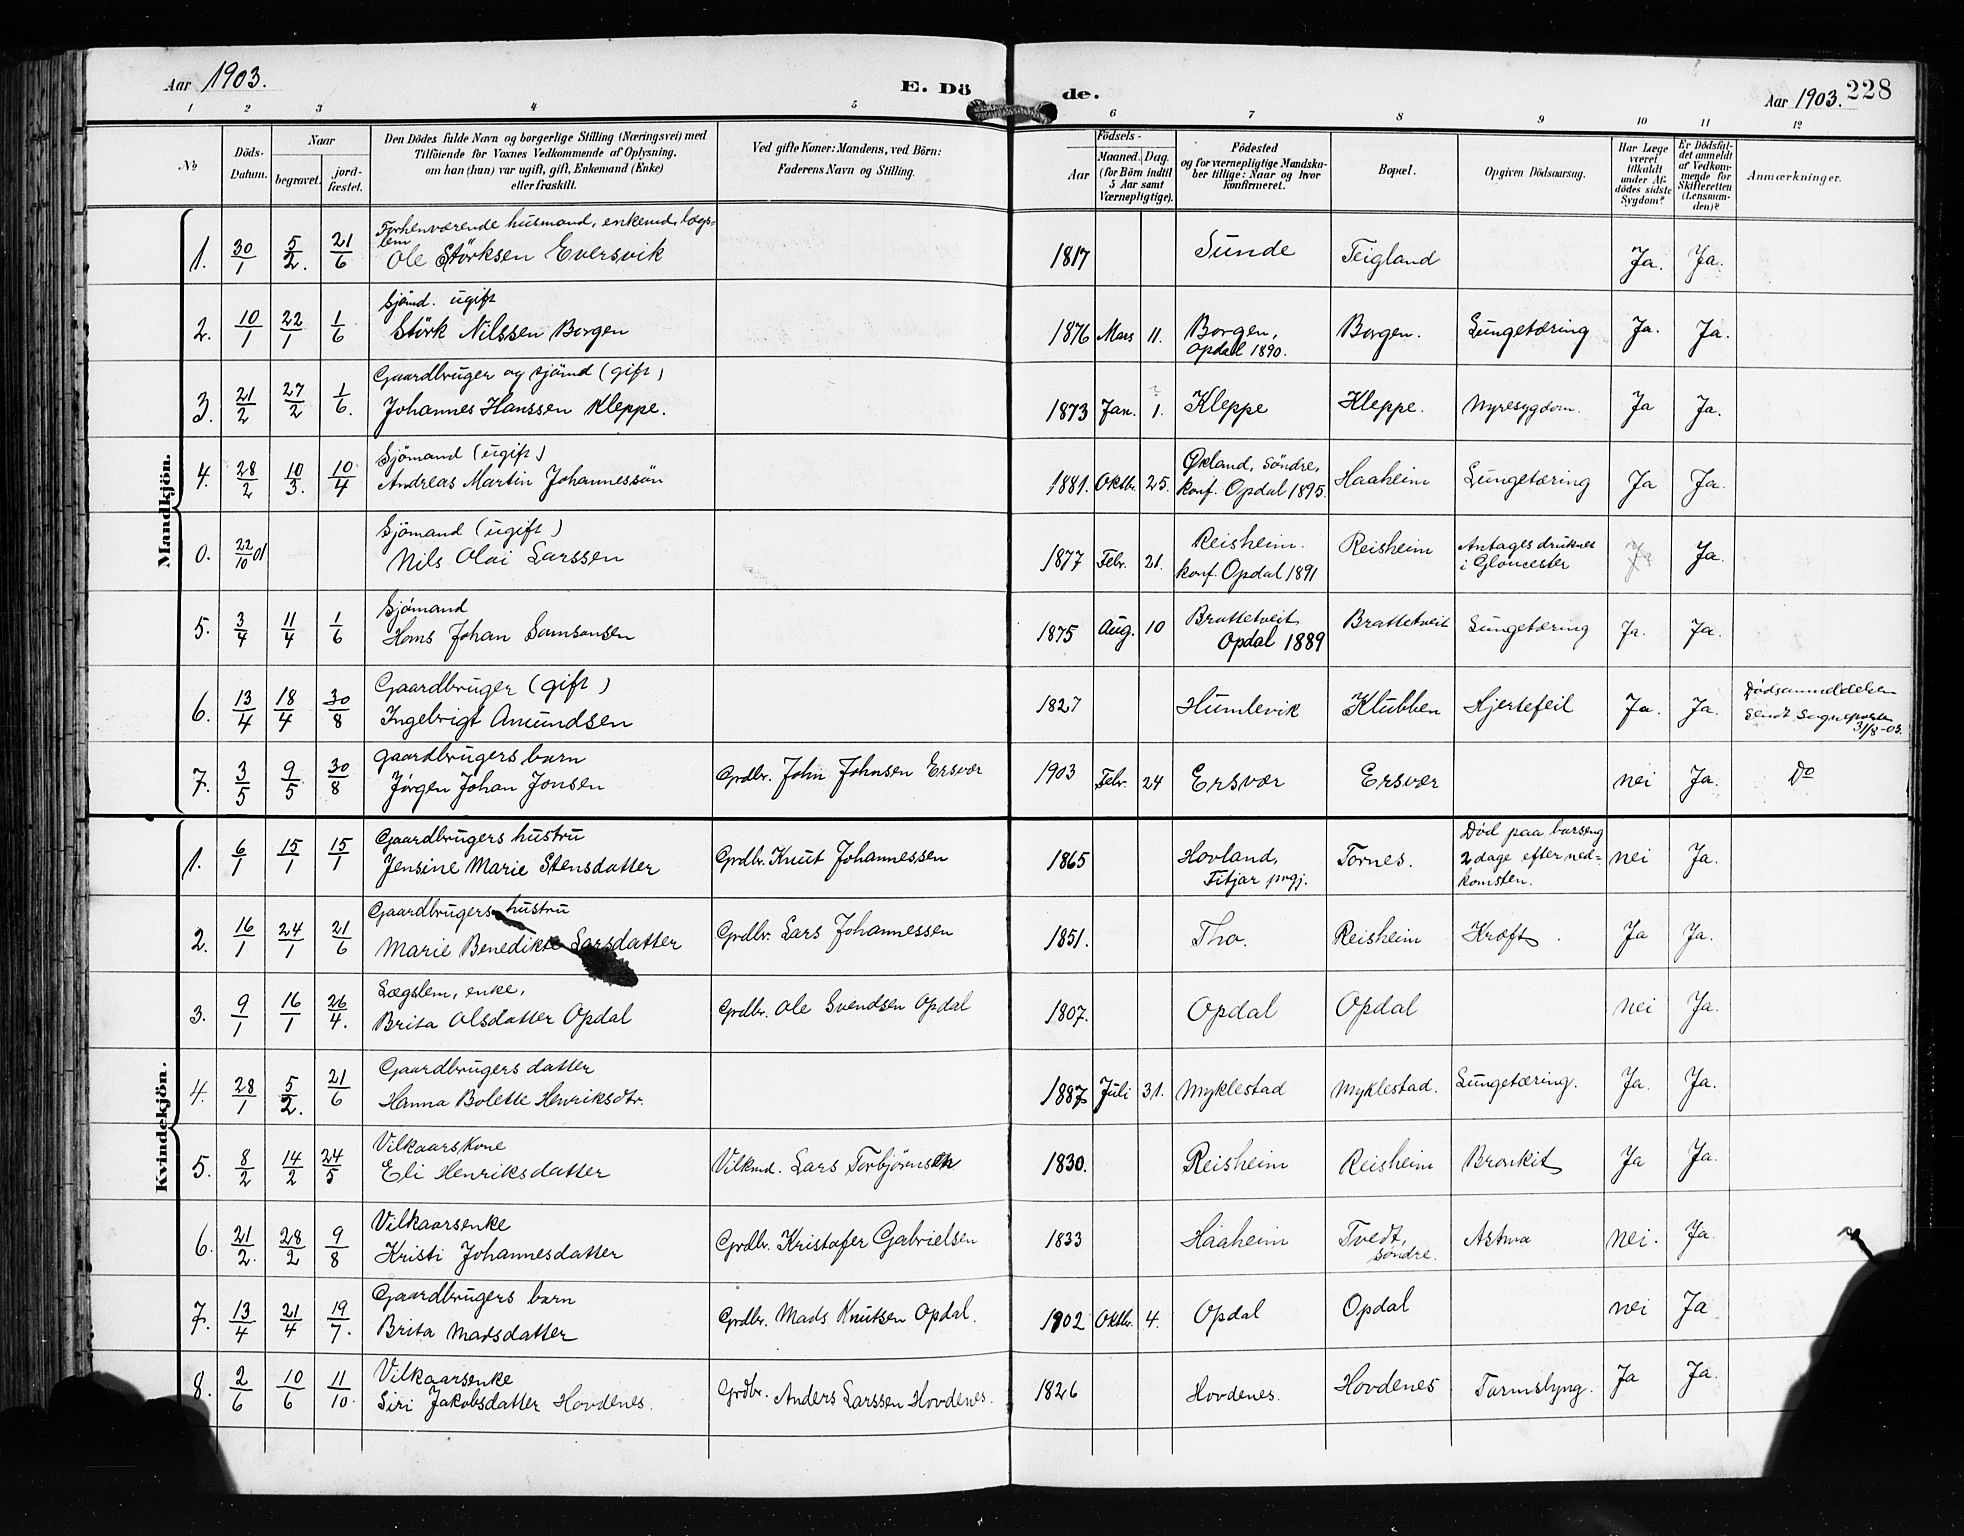 Aar 1903.
E. Dö
de.
Aar 1903.
228
1 2 3 4 5 6 7 8 9 10 11 12
No
Döds-Datum.
Naar
begravet.
jord-fæstet.
Den Dödes fulde Navn og borgerlige Stilling (Næringsvei) med
Tilföiende for Voxnes Vedkommende af Oplysning,
om han (hun) var ugift, gift, Enkemand (Enke)
eller fraskilt.
Ved gifte Koner: Mandens, ved Börn:
Faderens Navn og Stilling.
Födsels-
Aar
Maaned. Dag.
(for Börn indtil
5 Aar samt
Værnepligtige).
Födested
og for værnepligtige Mandska-
ber tillige: Naar og hvor
konfirmeret.
Bopæl.
Opgiven Dödsaarsag.
Har Læge
været
tilkaldt
under Af-
dödes sidste
Sygdom?
Er Dödsfal-
det anmeldt
af Vedkom-
mende for
Skifteretten
(Lensman-
den)?
Anmærkninger.
Mandkjön.
Forhenværende husmand, enkemd, lægs-
lem
1. 30/1 5/2. 21/6 Ole Störksen Eversvik 1817 Sunde Teigland Ja. Ja.
Sjömd. ugift
2. 10/1 22/1 1/6 Störk Nilssen Borgen 1876 Mars 11. Borgen, Borgen. Lungetæring Ja. Ja.
Opdal 1890.
Gaardbruger og sjömd (gift)
3. 21/2 27/2 1/6. Johannes Hanssen Kleppe. 1873 Jan. 1. Kleppe Kleppe. Nyresygdom. Ja Ja.
Sjömand (ugift)
4. 28/2 10/3. 10/4 Andreas Martin Johannessön 1881. Oktbr. 25. Økland, söndre, Haaheim Lungetæring Ja Ja.
konf. Opdal 1895.
Sjömand (ugift)
0. 22/10 01 Nils Olai Larssen 1877 Febr. 21. Reisheim. Reisheim Antages druknet Ja Ja.
konf. Opdal 1891 i Gloucester
Sjömand
5. 3/4 11/4 1/6 Hans Johan Samsonsen 1875 Aug. 10 Brattetveit Brattetveit Lungetæring Ja. Ja.
Opdal 1889
Gaardbruger (gift)
6. 13/4 18/4 30/8 Ingebrigt Amundsen 1827 Humlevik Klubben Hjertefeil Ja. Ja. Dödsanmeldelsen
sendt Sogneprsten
31/8-03.
gaardbrugers barn
7. 3/5 9/5. 30/8 Jörgen Johan Jonsen Grdbr. John Johnsen Ersvær 1903 Febr. 24 Ersvær Ersvær nei Ja. Do
Kvindekjön.
Gaardbrugers hustru
1. 6/1 15/1 15/1 Jensine Marie Stensdatter Grdbr. Knut Johannessen 1865 Hovland, Tornes. Död paa barseng nei Ja.
Fitjar prgj. 2 dage efter ned=
komsten.
Gaardbrugers hustru
2. 16/1 24/1 21/6 Marie Benedikte Larsdatter Grdbr. Lars Johannessen 1851. Tho. Reisheim Kræft. Ja Ja.
Lægslem, enke,
3. 9/1 16/1 26/4. Brita Olsdatter Opdal Grdbr. Ole Svendsen Opdal 1807. Opdal Opdal nei Ja.
Gaardbrugers datter
4. 28/1 5/2. 21/6 Hanna Bolette Henriksdtr. 1887 Juli 31. Myklestad Myklestad. Lungetæring. Ja. Ja.
Vilkaarskone
5. 8/2 14/2 24/5 Eli Henriksdatter Vilkmd. Lars Torbjörnsen 1830. Reisheim Reisheim Bronkit Ja Ja.
Vilkaarsenke
6. 21/2. 28/2 9/8 Kristi Johannesdatter Grdbr. Kristofer Gabrielsen 1833 Haaheim Tvedt, Astma nei. Ja.
söndre.
Gaardbrugers barn
7. 13/4 21/4 19/7. Brita Madsdatter Grdbr. Mads Knutsen Opdal. 1902 Oktbr. 4. Opdal Opdal nei Ja
Vilkaarsenke
8. 2/6 10/6 11/10. Siri Jakobsdatter Hovdenes. Grdbr. Anders Larssen Hovdenes. 1826 Hovdenes. Hovdenes Tarmslyng. Ja Ja.